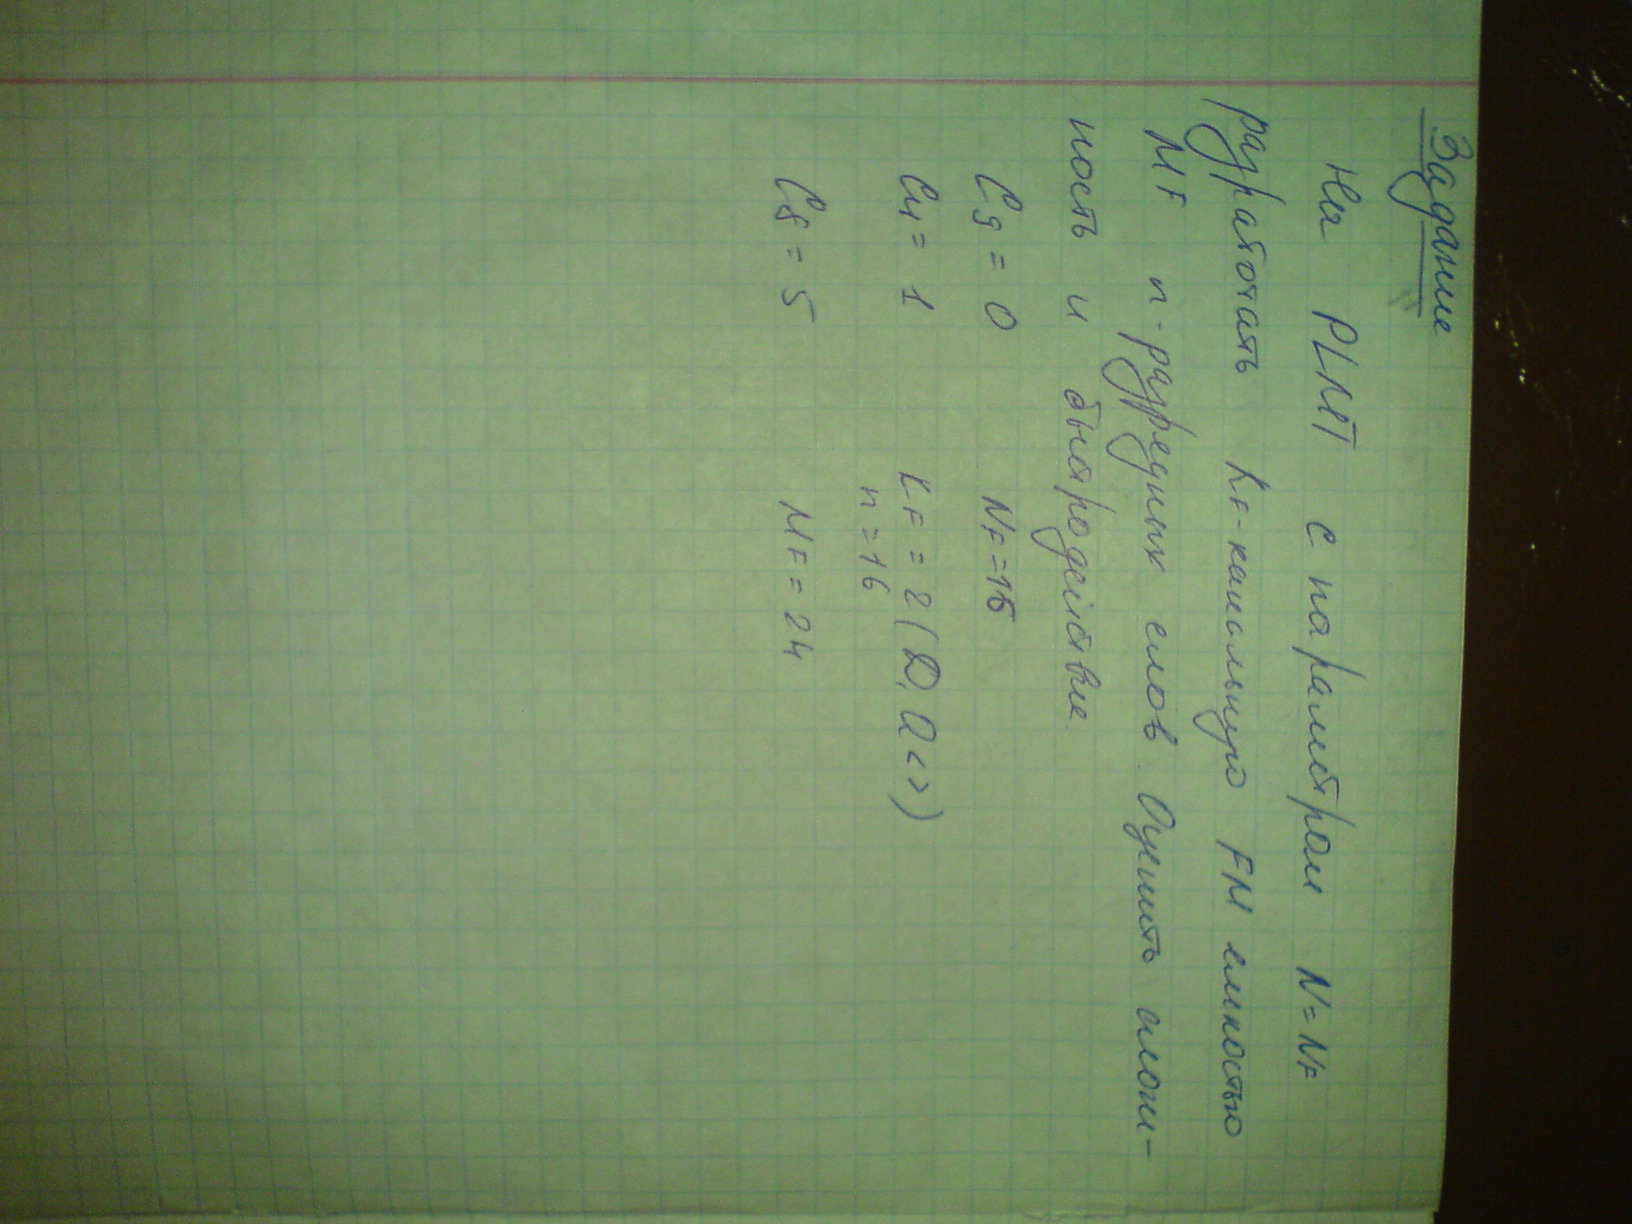 Задание
На PLMT с параметром N=NF
разработать KF-канальную FM емкостью
MF n-разредных слов. Оценить слож-
ность и быстродействие.
C9 = 0 NF=16
C4 = 1 KF = 2 (D, Q<>)
n=16
C8 = 5 MF = 24